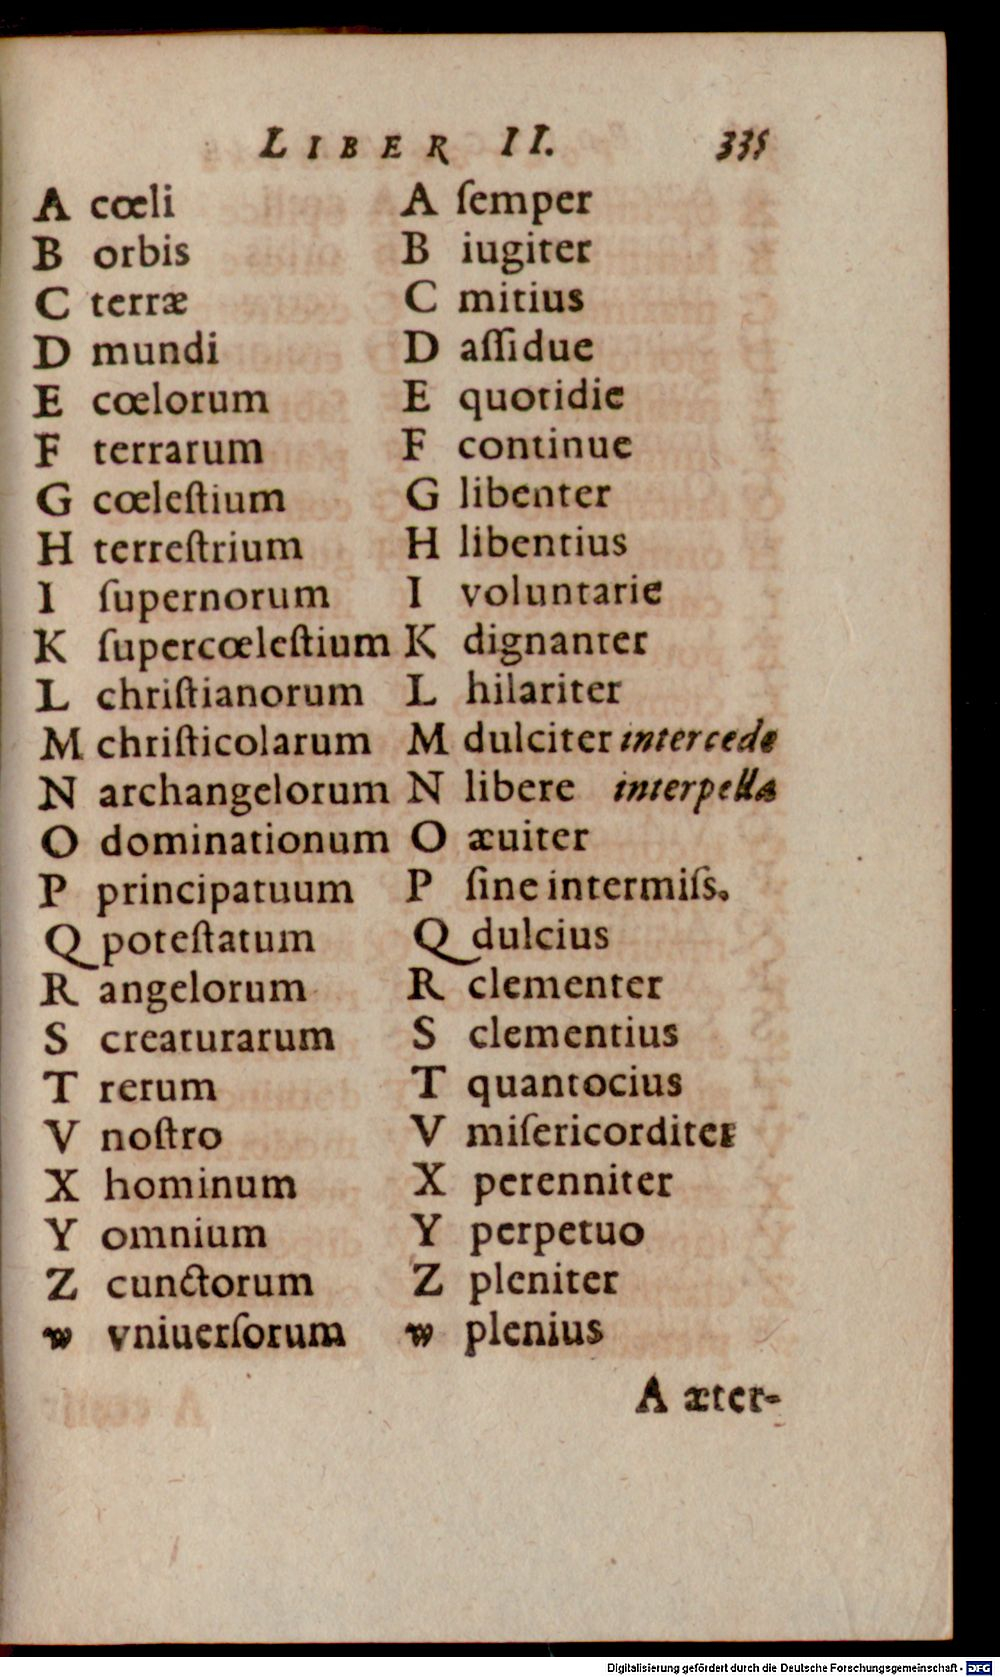 LIBER II. 335
A cœli A ſemper
B orbis B iugiter
C terræ C mitius
D mundi D aſſidue
E cœlorum E quotidie
F terrarum F continue
G cœleſtium G libenter
H terreſtrium H libentius
I ſupernorum I voluntarie
K ſupercœleſtium K dignanter
L chriſtianorum L hilariter
M chriſticolarum M dulciter intercede
N archangelorum N libere interpella
O dominationum O æuiter
P principatuum P ſine intermiſs.
Q poteſtatum Q dulcius
R angelorum R clementer
S creaturarum S clementius
T rerum T quantocius
V noſtro V miſericorditer
X hominum X perenniter
Y omnium Y perpetuo
Z cunctorum Z pleniter
w vniuerſorum w plenius
A æter-
Digitalisierung gefördert durch die Deutsche Forschungsgemeinschaft - DFG